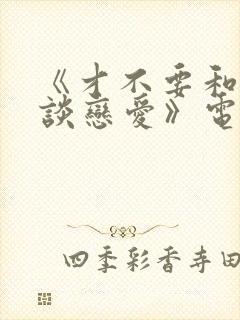 《才不要和
談戀愛》電
四季彩香寺田